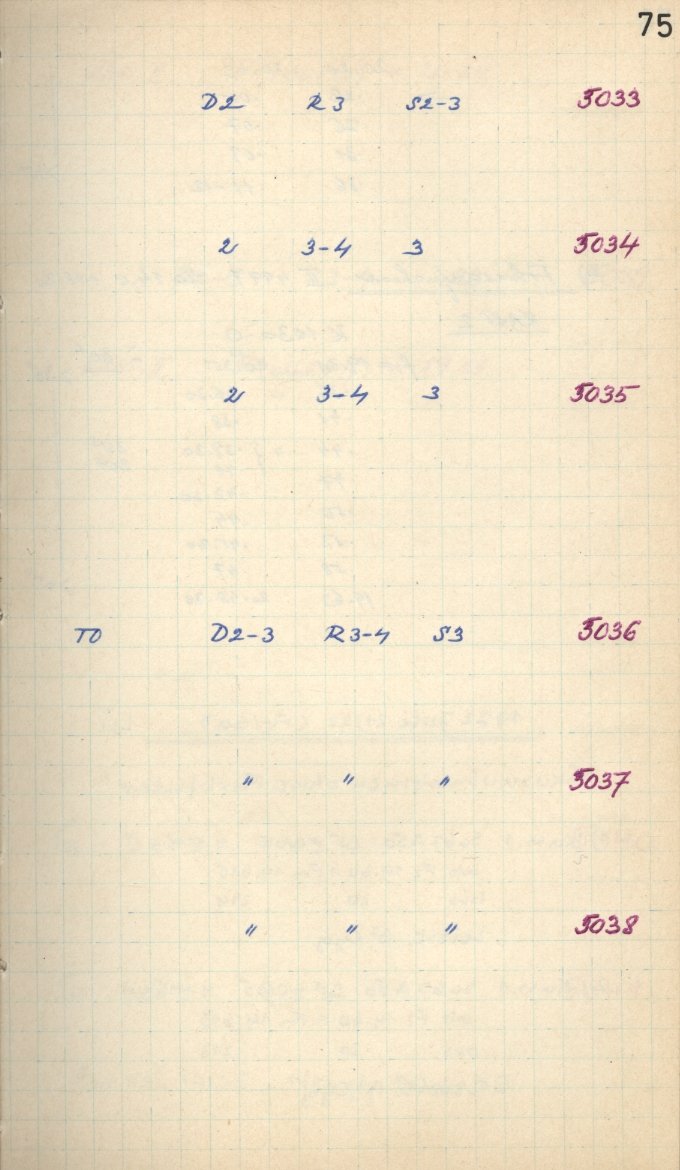 75
D2 R3 S2-3 5033
2 3-4 3 5034
2 3-4 3 5035
TO D2-3 R3-4 S3 5036
" " " 5037
" " " 5038